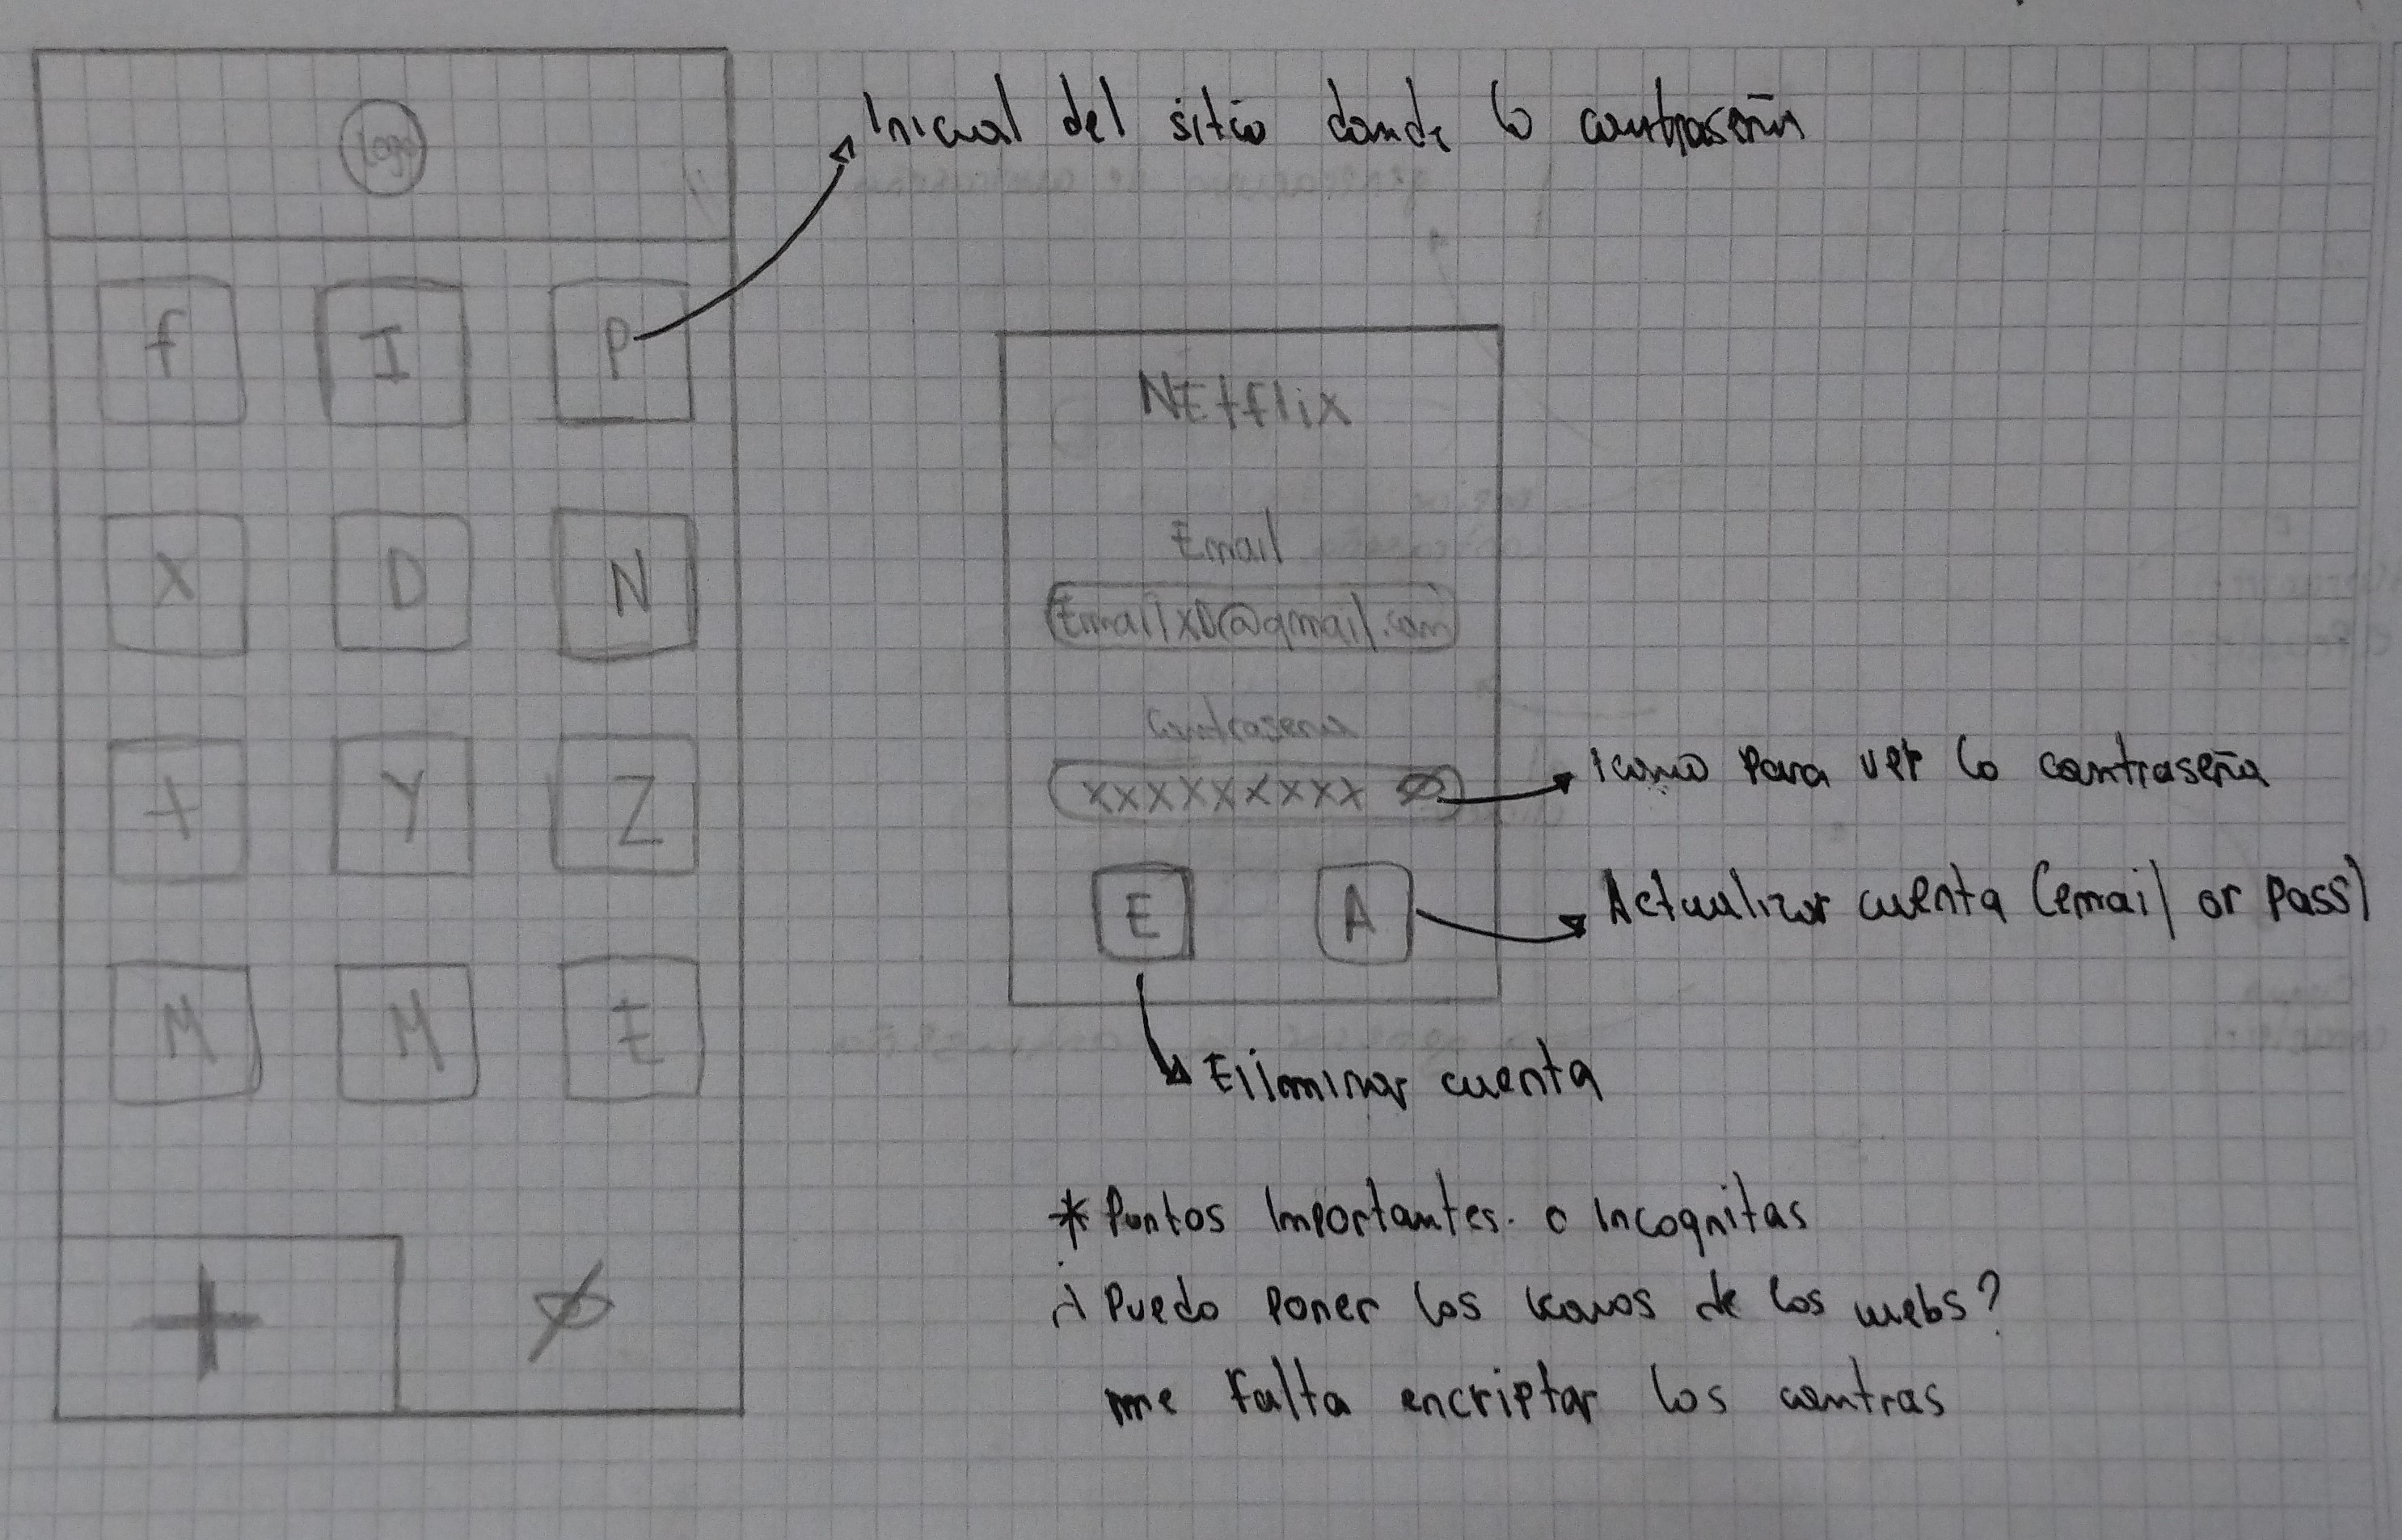 logo
Inicial del sitio donde la contraseña
f I P
X D N
+ Y Z
M M E
+
NEtflix
Email
Email1xD@gmail.com
Contraseña
xxxxxxxxx
icono para ver la contraseña
E A
Actualizar cuenta (email or pass)
Eliminar cuenta
* Puntos Importantes. o Incognitas
¿Puedo poner los iconos de las webs?
me falta encriptar las contras